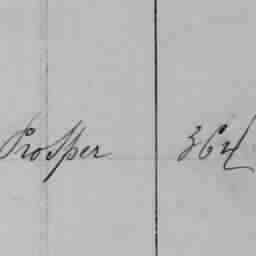 Prosper 364